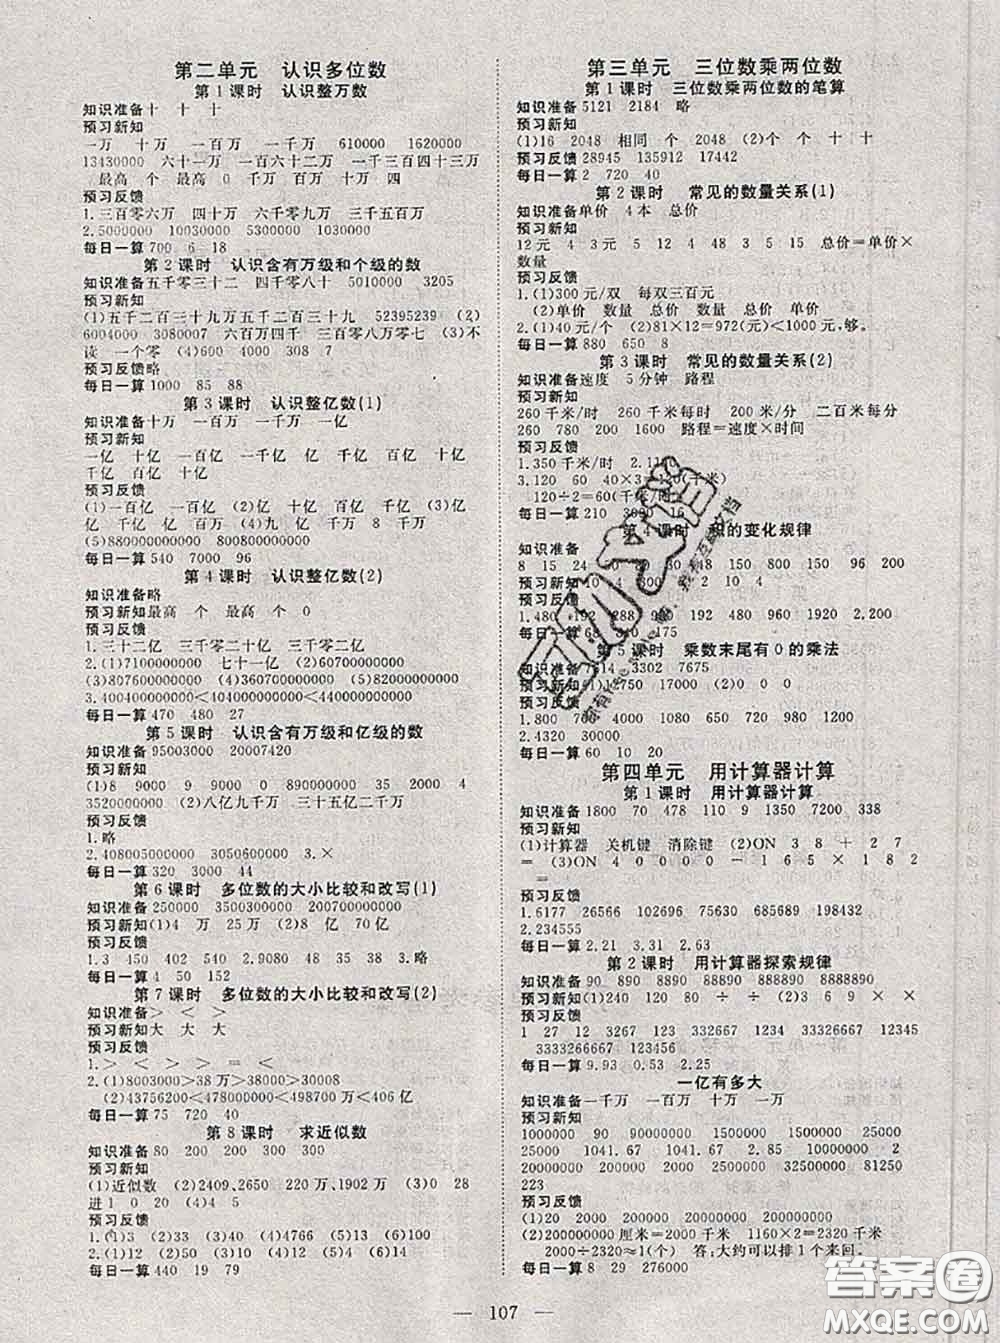 第二单元 认识多位数
第1课时 认识整万数
知识准备 十 十 十
预习新知
一万 十万 一百万 一千万 610000 1620000
13430000 六十一万 一百六十二万 一千三百四十三万
最高 个 最高 0 千万 百万 十万 四
预习反馈
1.三百零六万 四十万 六千零九万 三千五百万
2.5000000 10030000 5300000 1030000
每日一算 700 6 18
第2课时 认识含有万级和个级的数
知识准备 五千零三十二 四千零八十 5010000 3205
预习新知
(1)五千二百三十九万五千二百三十九 52395239 (2)
6004000 3080007 六百万四千 三百零八万七 (3)不
读 一个零 (4)600 4000 308 7
预习反馈略
每日一算 1000 85 88
第3课时 认识整亿数(1)
知识准备 十万 一百万 一千万 一亿
预习新知
一亿 十亿 一百亿 一千亿 亿 千亿 百亿 十亿
千亿 百亿 十亿
预习反馈
(1)一百亿 一亿 一百亿 一亿 (2)十亿 (3)亿
亿 千亿 百亿 (4)九亿 亿 千万 千万
(5)880000000000 800800000000
每日一算 540 7000 96
第4课时 认识整亿数(2)
知识准备略
预习新知最高 个 最高 个 0
预习反馈
1.三十二亿 三千零二十亿 三千零二亿
2.(1)7100000000 七十一亿 (2)60200000000
(3)807000000000 (4)240000000000 (5)82000000000
3.400400000000<404000000000<440000000000
每日一算 470 480 27
第5课时 认识含有万级和亿级的数
知识准备 95003000 20007420
预习新知
(1)8 9000 9 8900 0 9000 35 2000 4
3520000000 (2)八亿九千万 三十五亿二千万
预习反馈
1.略
2.408005000000 3050600000 3.×
每日一算 320 3000 44
第6课时 多位数的大小比较和改写(1)
知识准备 250000 3500300000 200700000000
预习新知(1)4 万 25万 (2)8 亿 70亿
预习反馈
1.3 450 402 540 2.9080 48 35 38 3.略
每日一算 4 50 152
第7课时 多位数的大小比较和改写(2)
知识准备> < >
预习新知大 大 大
预习反馈
1.> < > > = <
2.(1)8003000>38万>380000>300800
(2)43756200<478000000<498700万<406亿
每日一算 75 720 40
第8课时 求近似数
知识准备 80 200 200 300 300
预习新知
(1)近似数 (2)2409,2650 220万,1902万 (3)0 28
进1 0 20 (4)4 5
预习反馈
1.(1)3 (2)9 (3)0 (4)4766 (5)13 (6)50
2.(1)12 (2)43 (3)205 (4)10 (5)9 (6)11
每日一算 440 19 79
第三单元 三位数乘两位数
第1课时 三位数乘两位数的笔算
知识准备 5121 2184 略
预习新知
(1)16 2048 相同 个 2048 (2)个 个 十 十
预习反馈 28945 135912 17442
每日一算 2 720 40
第2课时 常见的数量关系(1)
知识准备 单价 4本 总价
预习新知
12元 4 3元 5 12 4 5 48 3 5 15 总价=单价×
数量
预习反馈
1.(1)300元/双 每双三百元
(2)单价 数量 总价 单价 数量 总价
2.(1)40元/个 (2)81×12=972(元)<1000元,够。
每日一算 880 650 8
第3课时 常见的数量关系(2)
知识准备 速度 5分钟 路程
预习新知
260千米/时 260千米每时 200米/分 二百米每分
260 780 200 1600 路程=速度×时间
预习反馈
1.350千米/时 2.110
3.120 2 60 40×3
120÷2=60(千米/时)
每日一算 210
第4课时 积的变化规律
知识准备
8 15 24 48 150 750 150 96 200
预习新知 10 4
1.480 192 288 192 480 960 1920 2.200
每日一算 175
第5课时 乘数末尾有0的乘法
知识准备 3302 7675
预习新知(1)12750 17000 (2)0 0 0
预习反馈
1.800 700 4000 8000 2000 300
2.4320 30000
每日一算 60 10 20
第四单元 用计算器计算
第1课时 用计算器计算
知识准备 1800 70 478 110 9 1350 7200 338
预习新知
(1)计算器 关机键 消除键 (2)ON 3 8 + 2 7
= (3)ON 4 0 0 0 0 - 1 6 5 × 1 8 2
=
预习反馈
1.6177 26566 102686 775299 89765 198432
2.234555
每日一算 2.21 3.31 2.63
第2课时 用计算器探索规律
知识准备 90 890 8890 88890 888890 8888890
预习新知(1)240 120 80 ÷ ÷ (2)3 69 × ×
预习反馈
1 27 12 3267 123 332667 1234 33326667 12345
3333266667 123456
每日一算 9.93 0.53 2.25
一亿有多大
知识准备 一千万 一百万 十万 一万
预习新知
1000000 90 90000000 25000 25000000 25000000
25000 1041.67 1041.67 2 20000 2000000
20000000 200000000 20000 20000000 81250
223
预习反馈
(1)20 2000 200000 200000000 2000
(2)200000000厘米=2000千米 1160×2=2320千米
2000÷2320≈1(个) 答:大约可以排1个来回。
每日一算 8 29 276000
107
答案圈
MXQE.COM